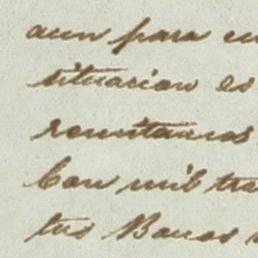 aun para en
situacion es
remitamos
Con mil tra
tus Banos